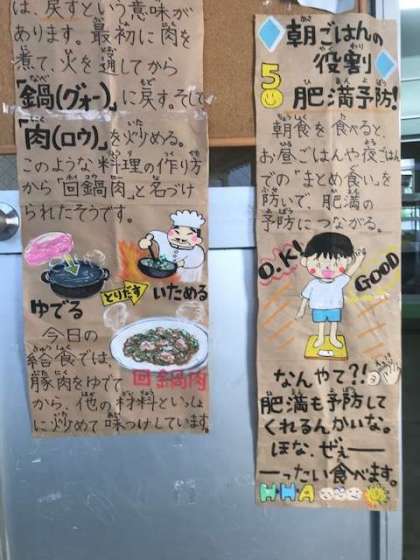 は、戻すという意味が
あります。最初に肉を
煮て、火を通してから
「鍋(グォー)」に戻す。そして
「肉(ロウ)」を炒める。
このような料理の作り方
から「回鍋肉」と名づけ
られたそうです。
ゆでる
とりだす
いためる
今日の
給食では、
豚肉をゆでて
回鍋肉
から、他の材料といっしょ
に炒めて味つけしています。
朝ごはんの
役割
5
肥満予防!
朝食を食べると、
お昼ごはんや夜ごはん
での「まとめ食い」を
防いで、肥満の
予防につながる。
O.K!
GOOD
なんやて?!
肥満も予防して
くれるんかいな。
ほな、ぜぇー
ーったい食べます。
HHA